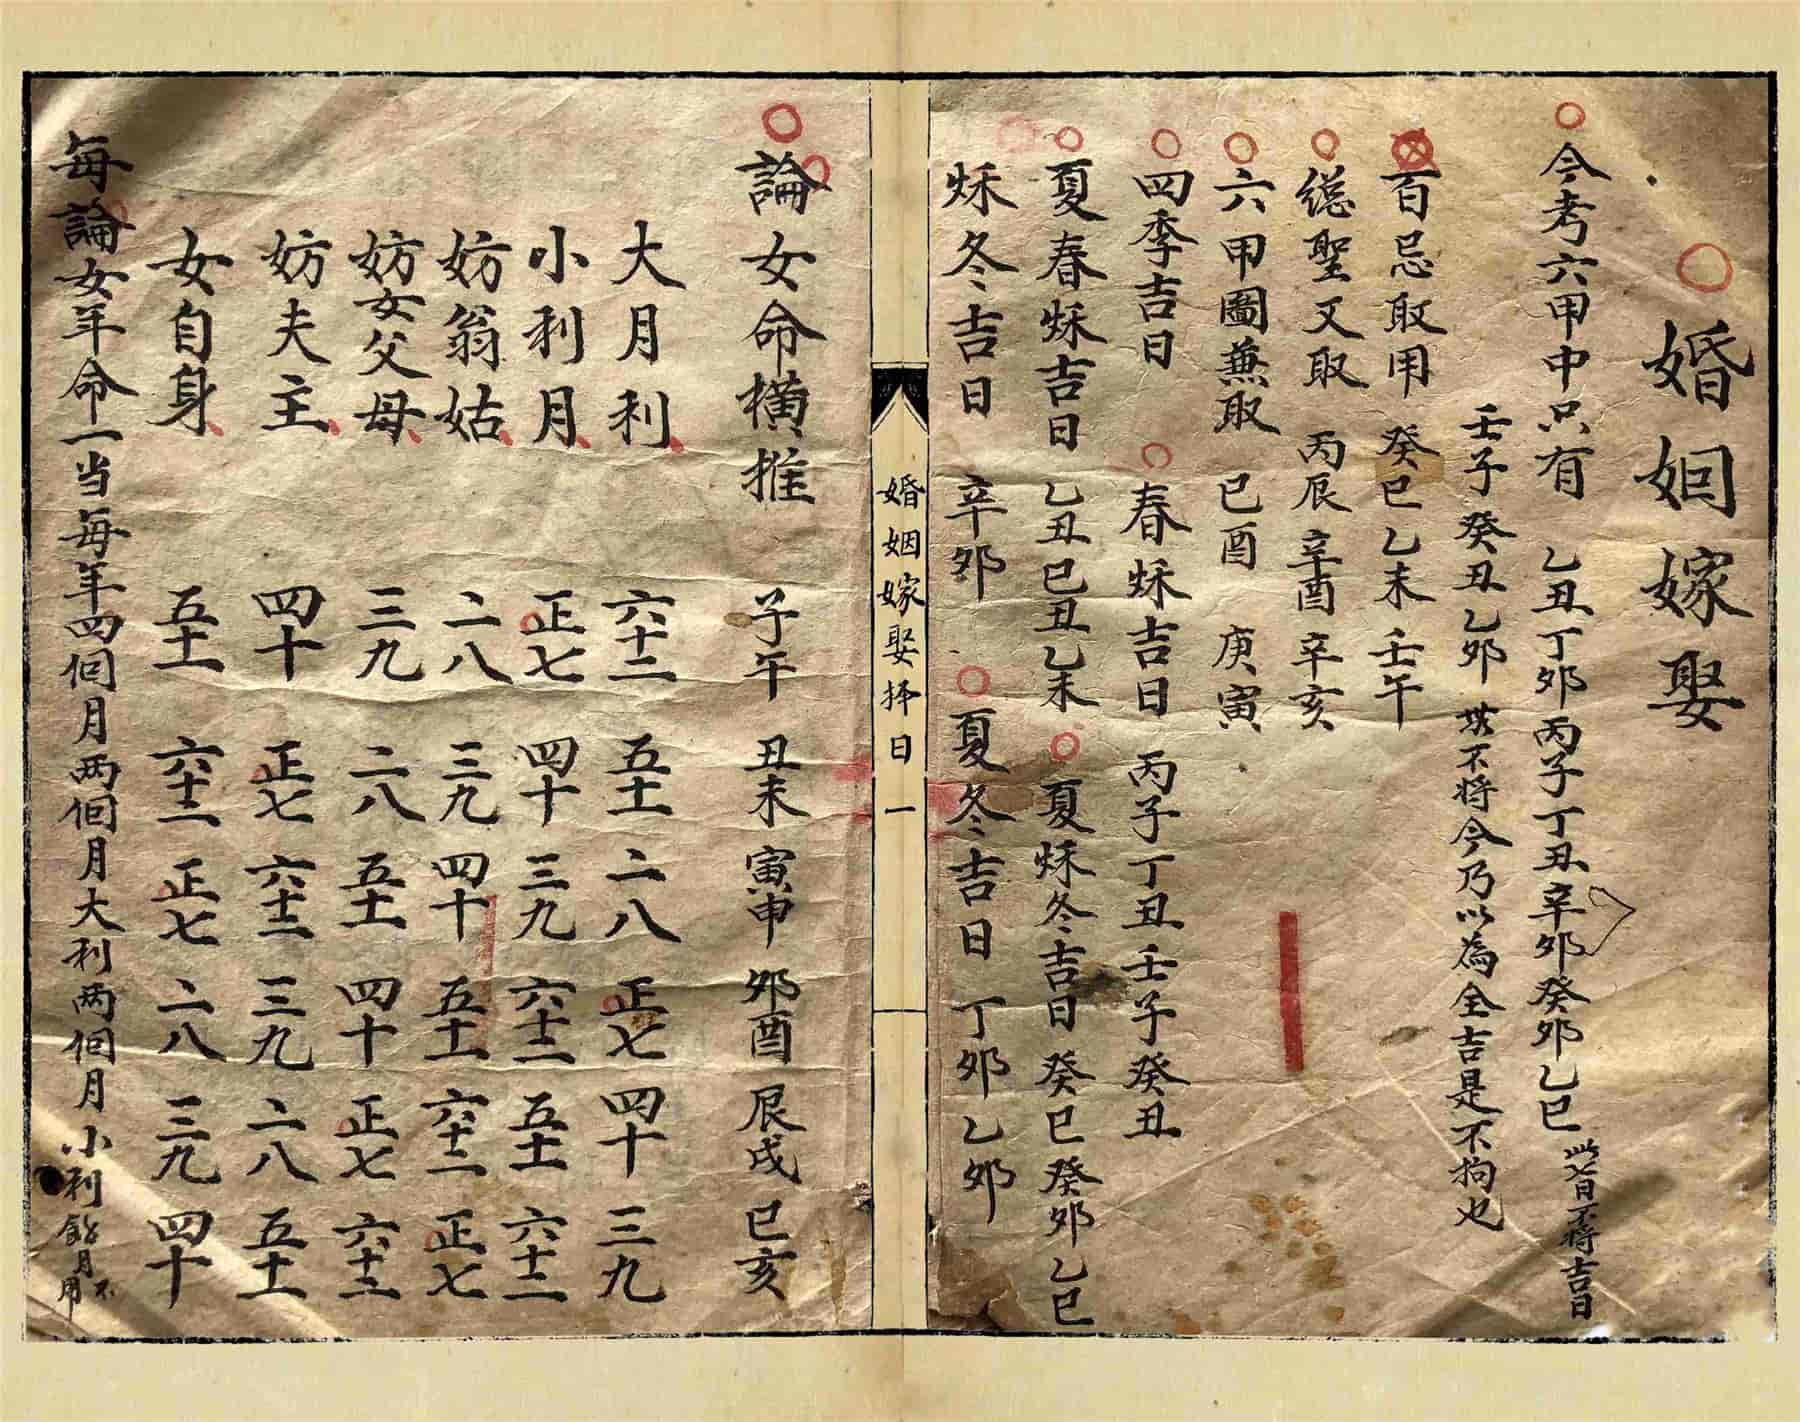 婚姻嫁娶
今考六甲中只有 乙丑丁卯丙子丁丑辛卯癸卯乙巳 以七日不将吉日
壬子癸丑乙卯 不将今乃以為全吉是不拘也
百忌取用 癸巳乙未壬午
總聖又取 丙辰辛酉辛亥
六甲圖兼取 己酉 庚寅
四季吉日 春秌吉日 丙子丁丑壬子癸丑
夏春秌吉日 乙丑巳丑乙未 夏秌冬吉日 癸巳癸卯乙巳
秌冬吉日 辛卯 夏冬吉日 丁卯乙卯
婚姻嫁娶择日 一
論女命橫推 子午 丑未 寅申 卯酉 辰戌 巳亥
大月利 六十二 五十一 二八 正七 四十 三九
小利月 正七 四十 三九 六十二 五十一 六十二
妨翁姑 二八 三九 四十 五十一 六十二 正七
妨女父母 三九 二八 五十一 四十 正七 六十二
妨夫主 四十 正七 六十二 三九 二八 五十一
女自身 五十一 六十二 正七 二八 三九 四十
每論女年命一当每年四個月两個月大利两個月小利餘月不用